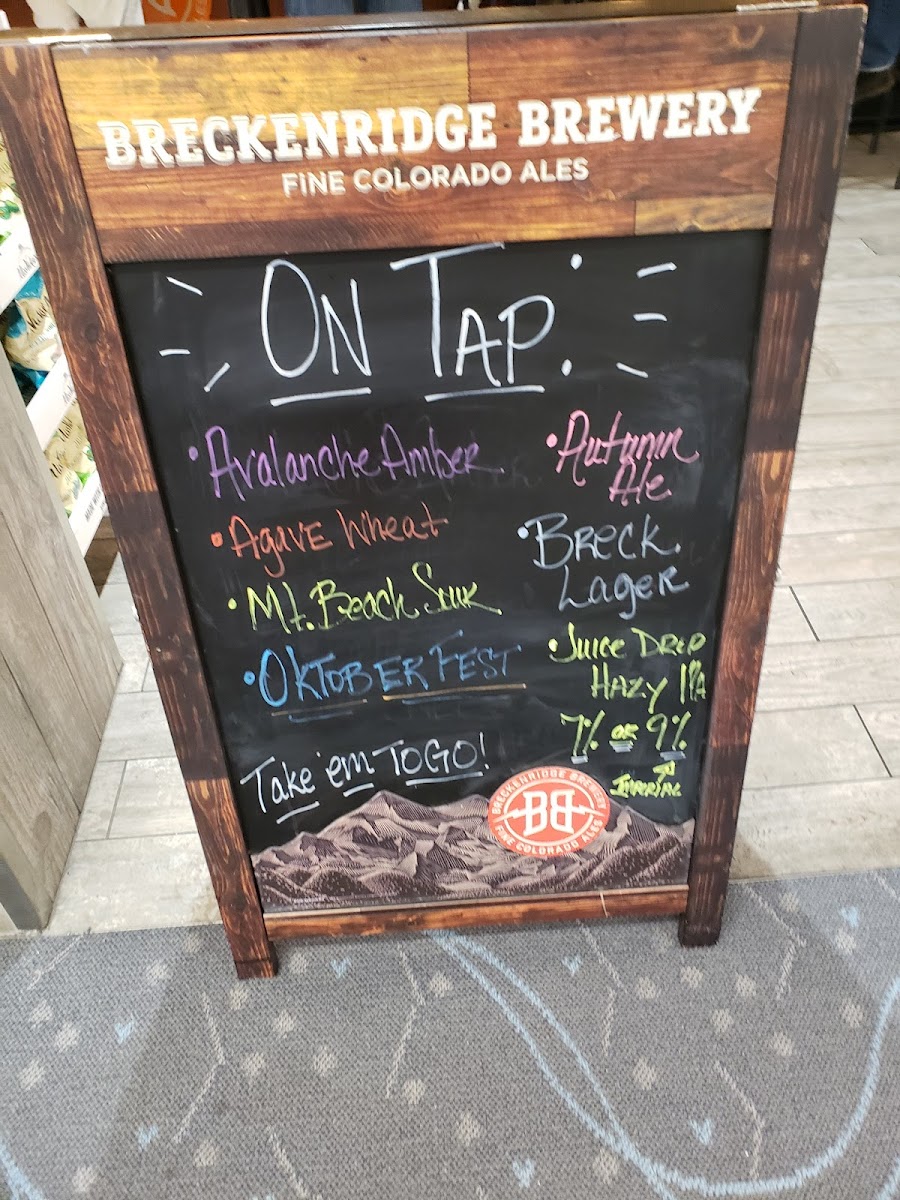 BRECKENRIDGE BREWERY
FINE COLORADO ALES
ON TAP.
• Avalanche Amber
• Agave Wheat
• Mt. Beach Sour
• OKTOBERFEST
• Autumn
Ale
• Breck.
Lager
• Juice Drop
Hazy IPA
7% or 9%
Imperial
Take 'em TO GO!
BRECKENRIDGE BREWERY
BB
FINE COLORADO ALES